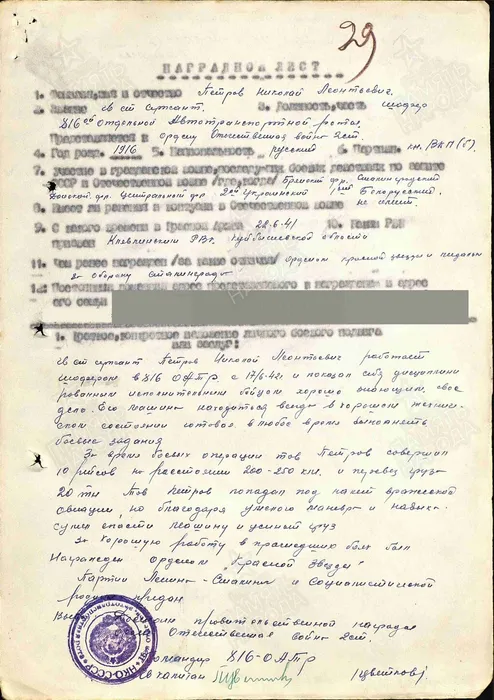 29
НАГРАДНОЙ ЛИСТ
1. Фамилия, имя и отчество Петров Николай Леонтьевич.
2. Звание гв ст сержант. 3. Должность, часть шофер
816ой Отдельной Автотранспортной роты.
Представляется к ордену Отечественной войны 2 ст.
4. Год рожд. 1916 5. Национальность русский 6. Партийн. ВКП(б).
7. Участие в гражданской войне, последующих боевых действиях по защите
СССР и Отечественной войне /где, когда/ Брянский фр. Сталинградский
Донской фр. Центральный фр. 2ой Украинский 1ый Белорусский.
8. Имеет ли ранения и контузии в Отечественной войне не имеет.
9. С какого времени в Красной Армии 22-6-41 10. Каким РВК
призван РВК, Куйбышевской области
11. Чем ранее награжден /за какие отличия/ Орденом красной звезды и медалью
За оборону Сталинграда
12. Постоянный домашний адрес представляемого к награждению и адрес
его семьи
1. Краткое, конкретное изложение личного боевого подвига
или заслуг:
гв ст сержант Петров Николай Леонтьевич работает
шофером в 816 ОАТР с 17/6-42г и показал себя дисциплини
рованным исполнительным бойцом хорошо знающим свое
дело. Его машина находиться всегда в хорошем техниче-
ском состоянии готовая в любое время выполнять
боевые задания
За время боевых операции тов Петров совершил
10 рейсов на расстояние 200-250 км. и перевез груза
20 тн Тов Петров попадал под налет вражеской
авиации, но благодаря умелого маневра и навыка
сумел спасти машину и ценный груз
За хорошую работу в прошедших боях был
Награжден орденом "Красной Звезды"
Партии Ленина-Сталина и Социалистической
родине предан
Достоин правительственной награды
Отечественная война 2 ст.
Командир 816-ОАТР
гв капитан (Цветков)
НКО-СССР